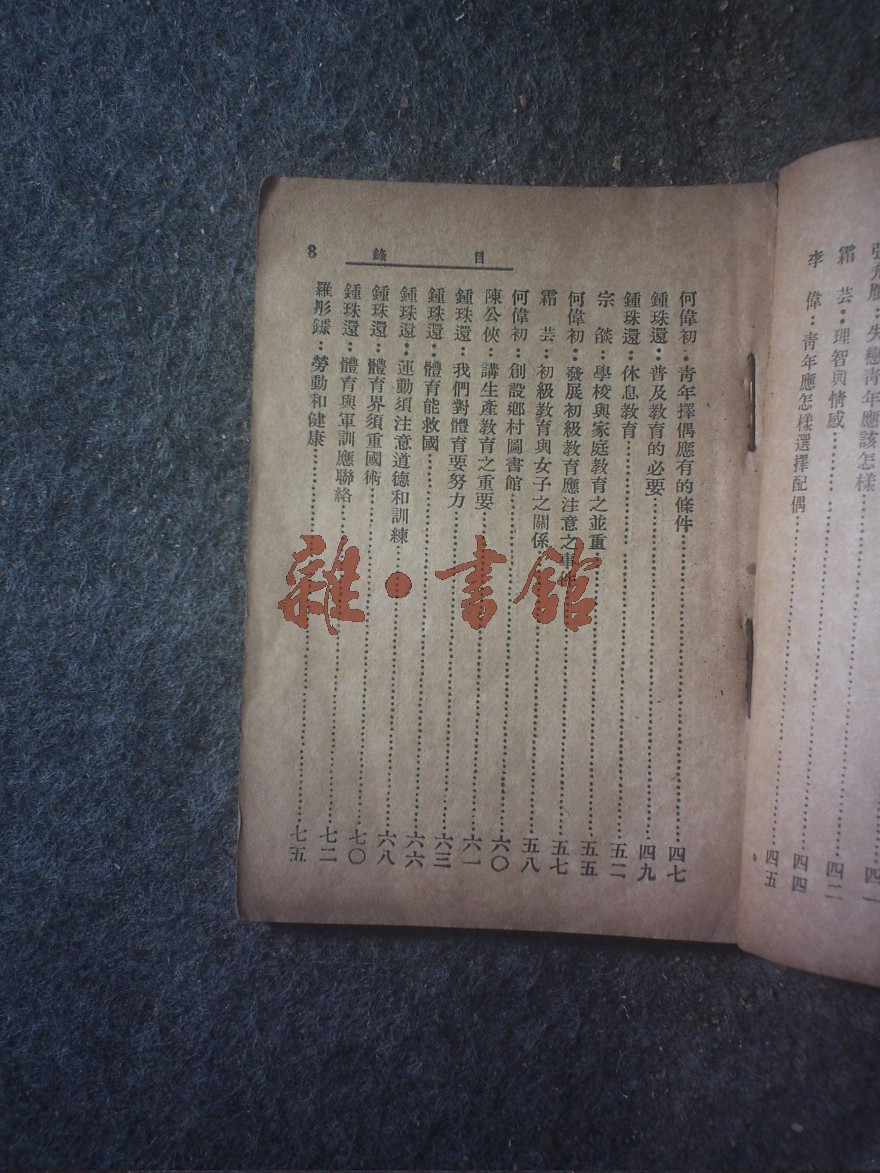 四一
失戀青年應該怎樣……四二
霜芸：理智與情感……四四
李偉：青年應怎樣選擇配偶……四五
目錄
8
何偉初：青年擇偶應有的條件……四七
鍾珠還：普及教育的必要……四九
鍾珠還：休息教育……五二
宗燄：學校與家庭教育之並重……五五
何偉初：發展初級教育應注意之事……五七
霜芸：初級教育與女子之關係……五八
何偉初：創設鄉村圖書館……六〇
陳公俠：講生產教育之重要……六一
鍾珠還：我們對體育要努力……六三
鍾珠還：體育能救國……六六
鍾珠還：運動須注意道德和訓練……六八
鍾珠還：體育界須重國術……七〇
鍾珠還：體育與軍訓應聯絡……七二
羅彤鋆：勞動和健康……七五
雜·書館